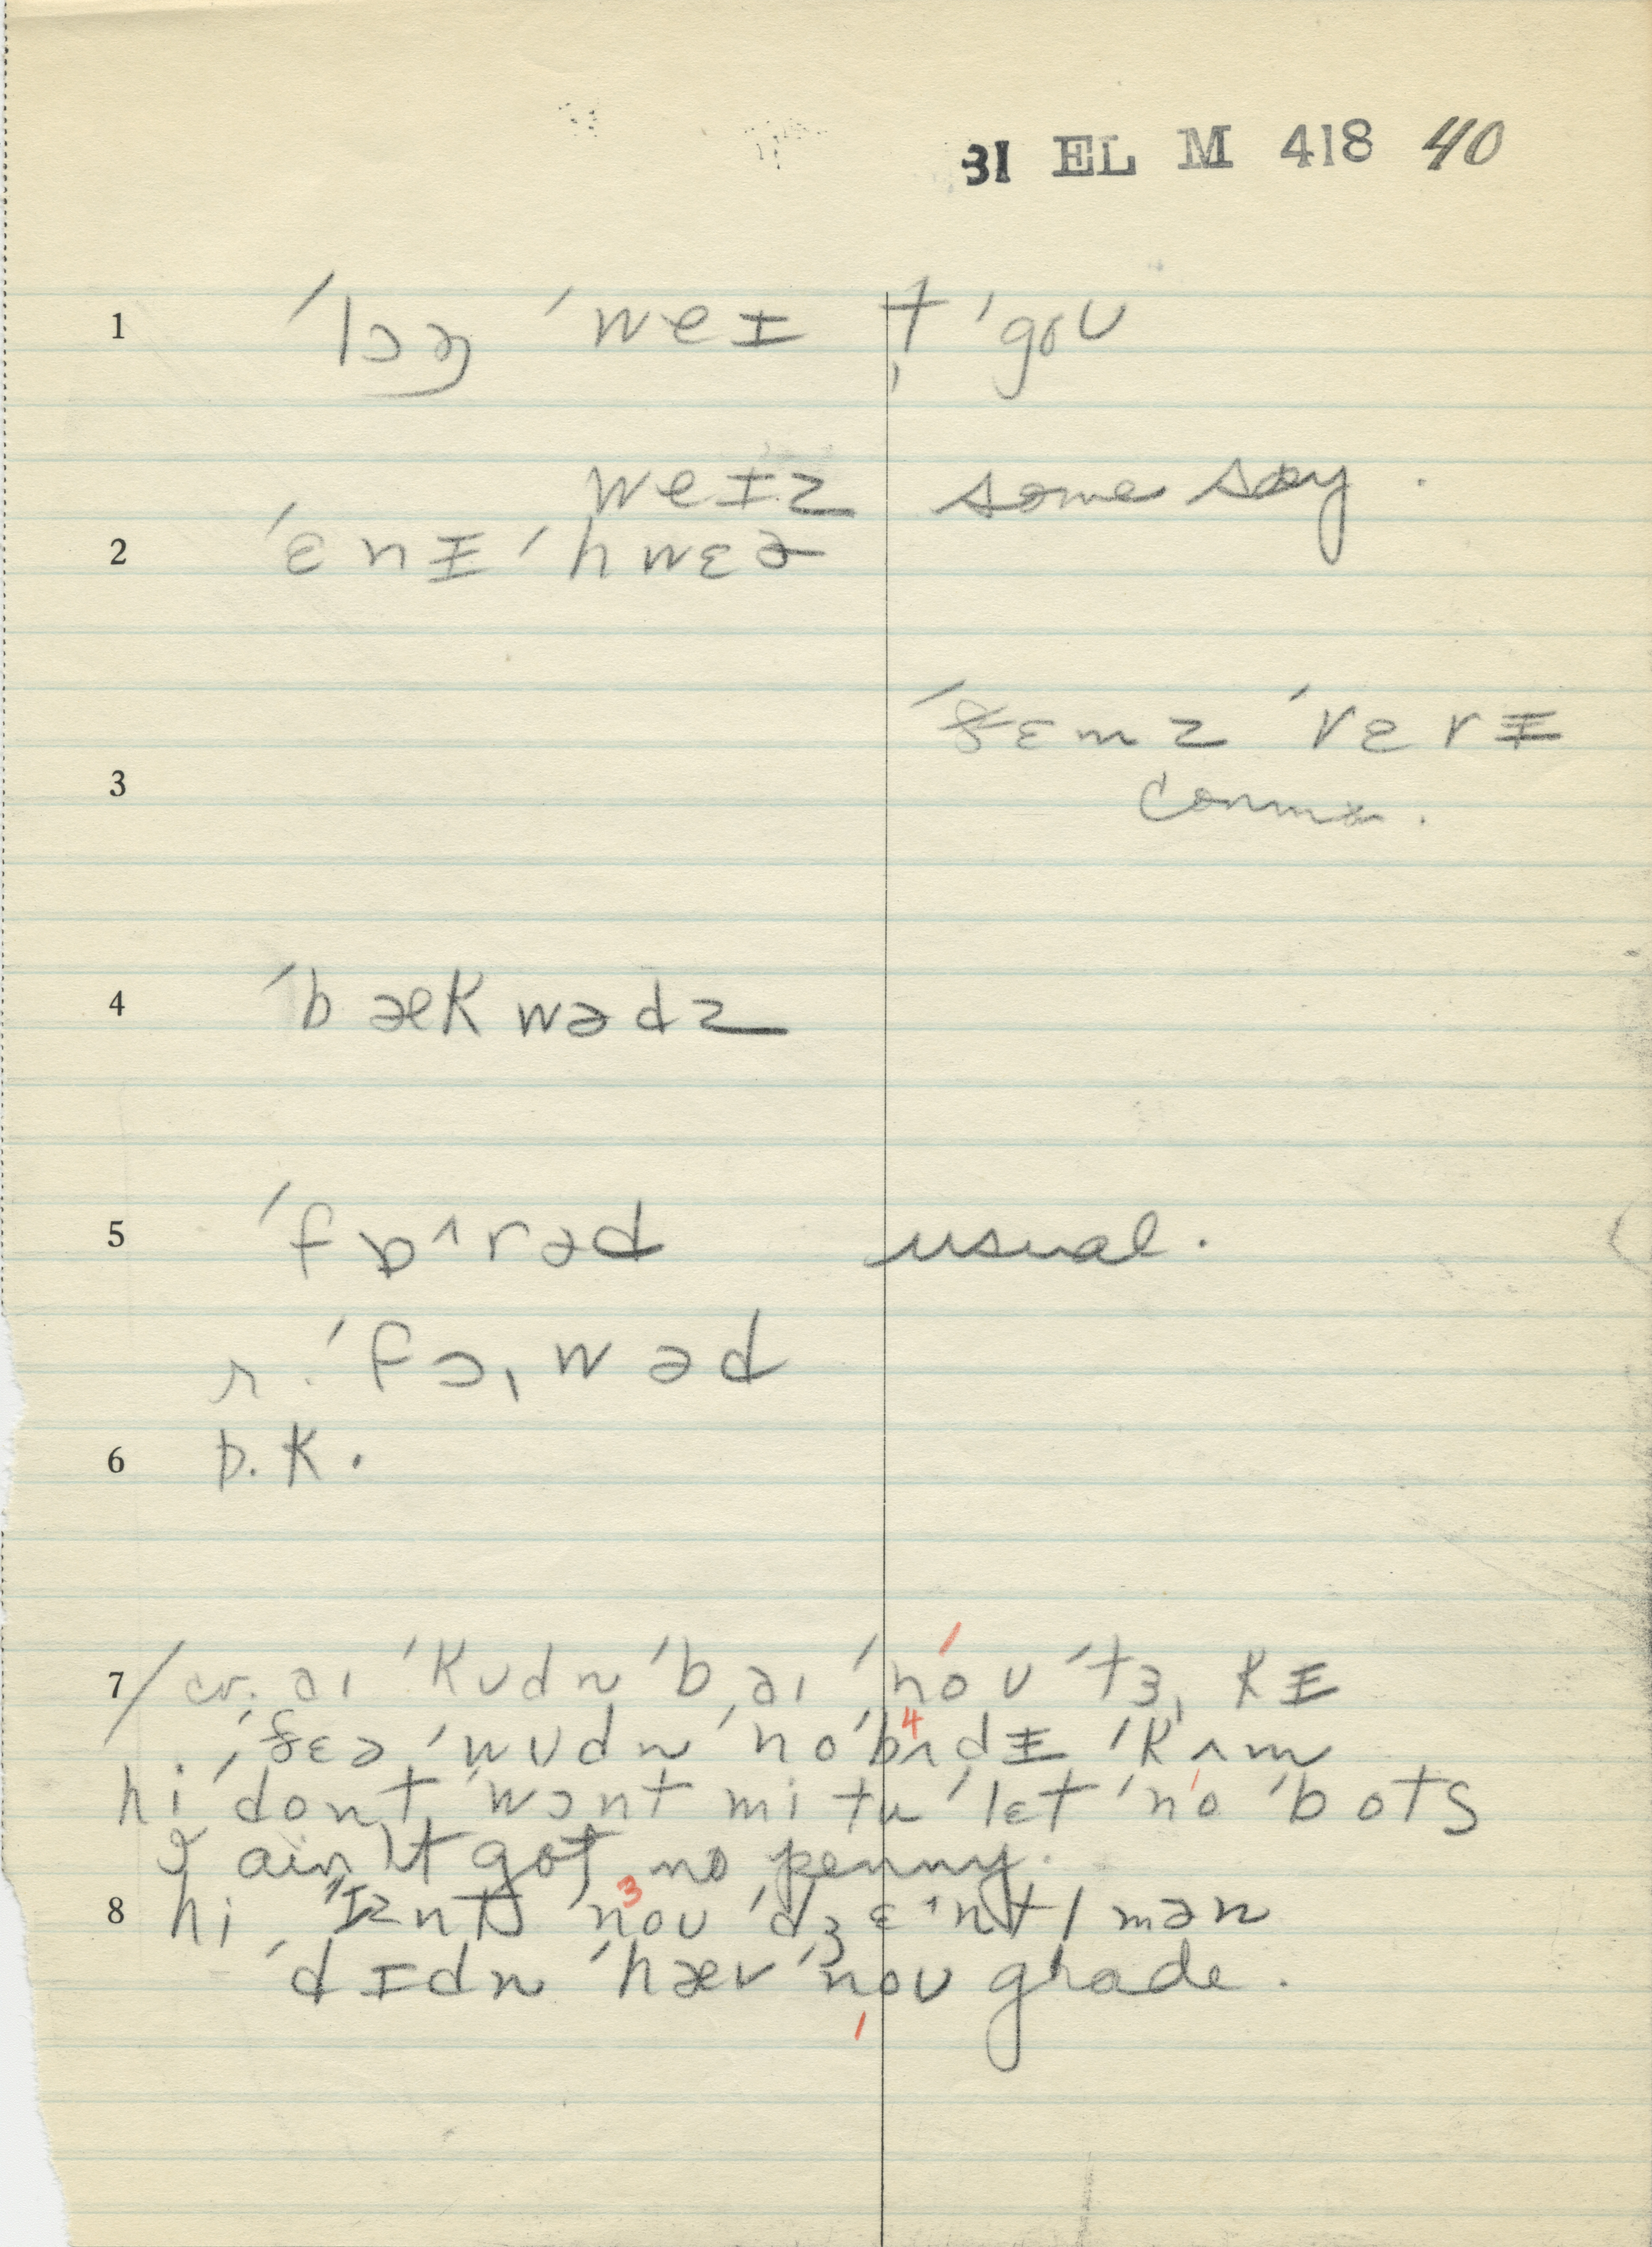 31 EL M 418 40
1 ˈlɔŋ ˈweɪ t̬ ˈgoʊ
weɪz some say.
2 ˈɛnɪ ˈhwɛɚ
ˈðɛmz ˈvɛrɪ
3
4 ˈbækwədz
5 ˈfɒ^rəd usual.
r. ˈfɔ,wəd
6 D.K.
7 / cv. aɪ ˈkʊdn ˈbaɪ ˈnoʊ ˈtɜ,kɪ
ˈðɛə ˈwʊdn ˈno ˈbʌdɪ ˈkʌm 4
hi ˈdont ˈwɔnt mi tu ˈlɛt ˈno ˈbots
I ain't got no penny.
8 hi ˈɪznt ˈnoʊ ˈdʒɛ^ntlmən 3
ˈdɪdn ˈhæv ˈnoʊ grade.